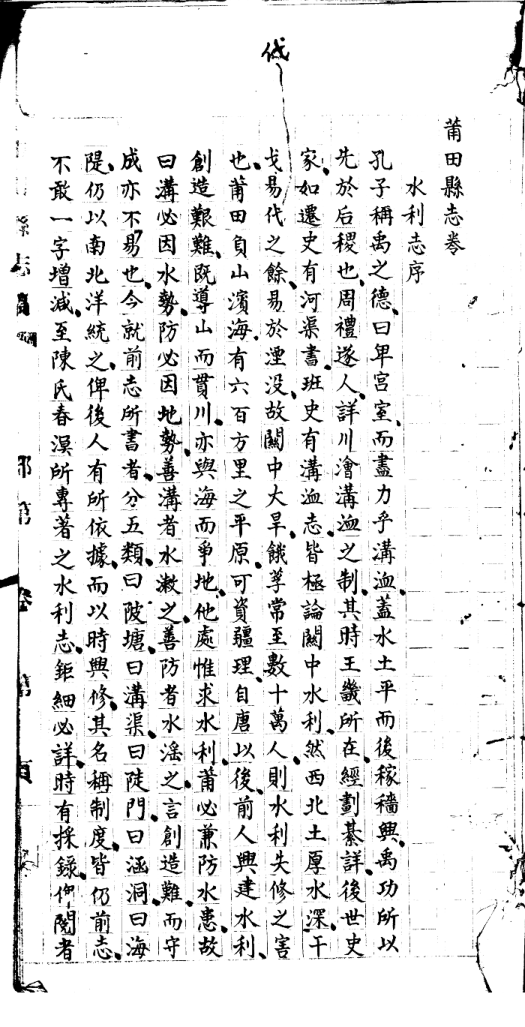 伐
莆田縣志卷
水利志序
孔子稱禹之德曰卑宮室而盡力乎溝洫蓋水土平而後稼穡興禹功所以
先於后稷也周禮遂人詳川澮溝洫之制其時王畿所在經劃綦詳後世史
家如遷史有河渠書班史有溝洫志皆極論關中水利然西北土厚水深干
戈易代之餘易於湮没故關中大旱餓莩常至數十萬人則水利失修之害
也莆田負山濱海有六百方里之平原可資疆理自唐以後前人興建水利
創造艱難既導山而貫川亦與海而爭地他處惟求水利莆必兼防水患故
曰溝必因水勢防必因地勢善溝者水漱之善防者水滛之言創造難而守
成亦不易也今就前志所書者分五類曰陂塘曰溝渠曰陡門曰涵洞曰海
隄仍以南北洋統之俾後人有所依據而以時興修其名稱制度皆仍前志
不敢一字增減至陳氏春溟所專著之水利志鉅細必詳時有採録俾閱者